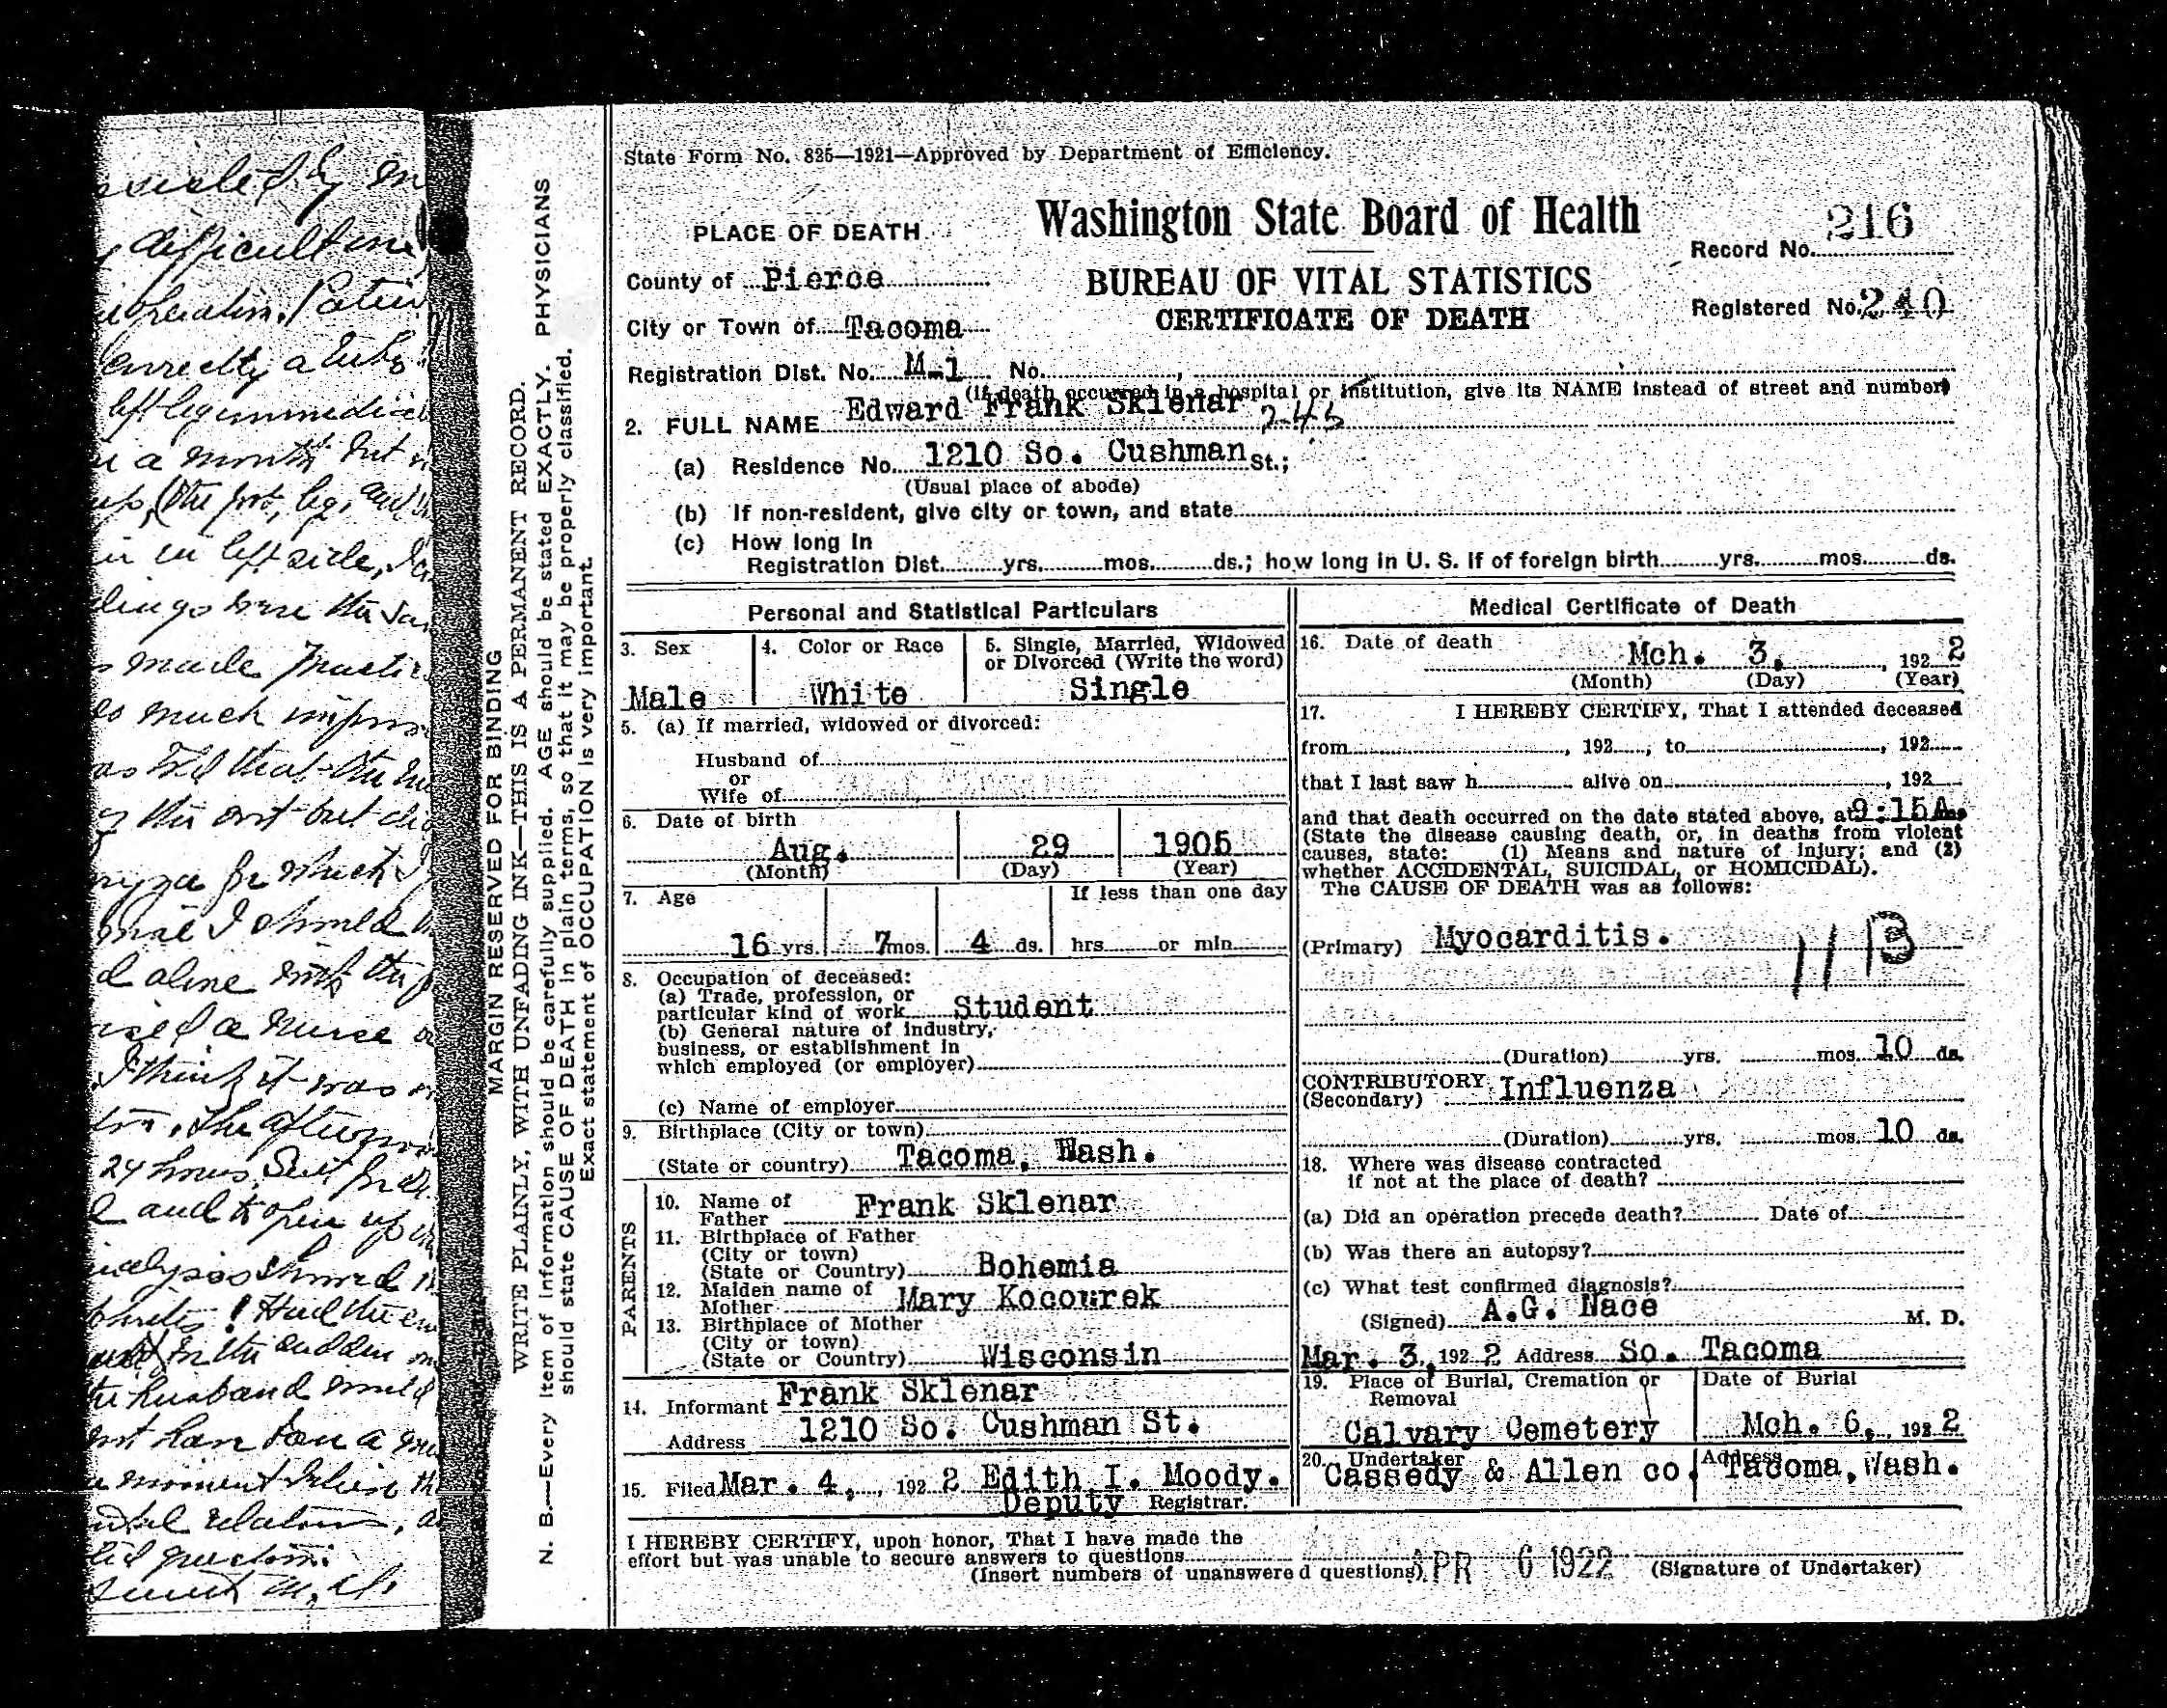 State Form No. 825—1921—Approved by Department of Efficiency.
Washington State Board of Health
BUREAU OF VITAL STATISTICS
CERTIFICATE OF DEATH
Record No. 216
Registered No. 240
PLACE OF DEATH
County of Pierce
City or Town of Tacoma
Registration Dist. No. M-1 No.
(If death occurred in a hospital or institution, give its NAME instead of street and number)
2. FULL NAME Edward Frank Sklenar 245
(a) Residence No. 1210 So. Cushman St.;
(Usual place of abode)
(b) If non-resident, give city or town, and state
(c) How long in
Registration Dist. yrs. mos. ds.; how long in U. S. if of foreign birth yrs. mos. ds.
Personal and Statistical Particulars
3. Sex
Male
4. Color or Race
White
5. Single, Married, Widowed
or Divorced (Write the word)
Single
5. (a) If married, widowed or divorced:
Husband of
or
Wife of
6. Date of birth
Aug. 29 1905
(Month) (Day) (Year)
7. Age If less than one day
16 yrs. 7 mos. 4 ds. hrs. or min.
8. Occupation of deceased:
(a) Trade, profession, or
particular kind of work Student
(b) General nature of industry,
business, or establishment in
which employed (or employer)
(c) Name of employer
9. Birthplace (City or town)
(State or country) Tacoma, Wash.
PARENTS
10. Name of
Father Frank Sklenar
11. Birthplace of Father
(City or town)
(State or Country) Bohemia
12. Maiden name of
Mother Mary Kocourek
13. Birthplace of Mother
(City or town)
(State or Country) Wisconsin
14. Informant Frank Sklenar
Address 1210 So. Cushman St.
15. Filed Mar. 4, 1922 Edith I. Moody.
Deputy Registrar.
Medical Certificate of Death
16. Date of death Mch. 3, 1922
(Month) (Day) (Year)
17. I HEREBY CERTIFY, That I attended deceased
from , 192 , to , 192
that I last saw h alive on , 192
and that death occurred on the date stated above, at 9:15A.
(State the disease causing death, or, in deaths from violent
causes, state: (1) Means and nature of injury; and (2)
whether ACCIDENTAL, SUICIDAL, or HOMICIDAL).
The CAUSE OF DEATH was as follows:
(Primary) Myocarditis. 11B
(Duration) yrs. mos. 10 ds.
CONTRIBUTORY Influenza
(Secondary)
(Duration) yrs. mos. 10 ds.
18. Where was disease contracted
if not at the place of death?
(a) Did an operation precede death? Date of
(b) Was there an autopsy?
(c) What test confirmed diagnosis?
(Signed) A.G. Nace M. D.
Mar. 3, 1922 Address So. Tacoma
19. Place of Burial, Cremation or
Removal
Calvary Cemetery
Date of Burial
Mch. 6, 1922
20. Undertaker
Cassedy & Allen co.
Address
Tacoma, Wash.
I HEREBY CERTIFY, upon honor, That I have made the
effort but was unable to secure answers to questions
(Insert numbers of unanswered questions) APR 6 1922 (Signature of Undertaker)
MARGIN RESERVED FOR BINDING
WRITE PLAINLY, WITH UNFADING INK—THIS IS A PERMANENT RECORD.
N. B.—Every item of information should be carefully supplied. AGE should be stated EXACTLY. PHYSICIANS
should state CAUSE OF DEATH in plain terms, so that it may be properly classified.
Exact statement of OCCUPATION is very important.
difficult
a month but
the foot, leg, and
in left side,
made
so much
for which
I should
alone with the
a nurse
I think it was
The afternoon
24 hours. Sent for Dr.
and to open up
showed
Had the
for the sudden
husband
a moment believe
relations,
M. D.